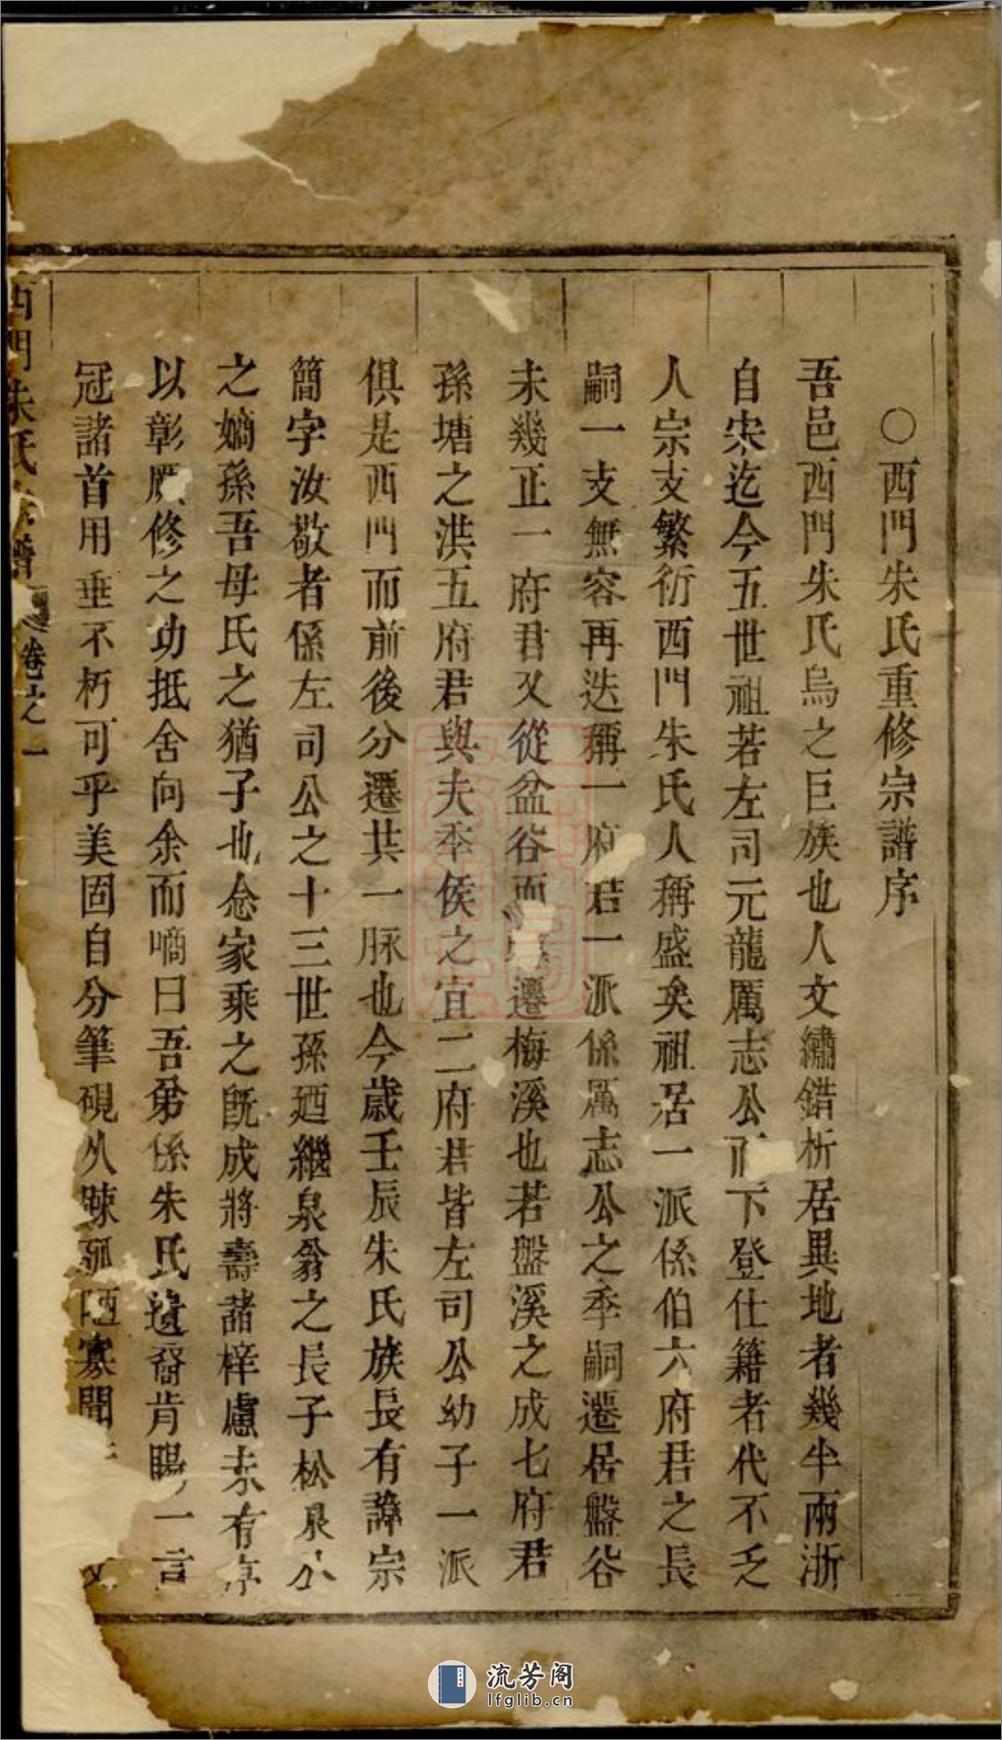 ○西門朱氏重修宗譜序
吾邑西門朱氏烏之巨族也人文繡錯析居異地者幾半兩浙
自宋迄今五世祖若左司元龍厲志公而下登仕籍者代不乏
人宗支繁衍西門朱氏人稱盛矣祖居一派係伯六府君之長
嗣一支無容再迭稱一府君一派係厲志公之季嗣遷居盤谷
未幾正一府君又從盆谷而遷梅溪也若盤溪之成七府君
孫塘之洪五府君與夫奉侯之宜二府君皆左司公幼子一派
俱是西門而前後分遷其一脉也今歲壬辰朱氏族長有諱宗
簡字汝敬者係左司公之十三世孫廼繼泉翁之長子松泉公
之嫡孫吾母氏之猶子也念家乘之既成將壽諸梓慮未有序
以彰厥修之功抵舍向余而嘱曰吾弟係朱氏遺裔肯賜一言
冠諸首用垂不朽可乎美固自分筆硯久踈孤陋寡聞
西門朱氏宗譜 卷之一
流芳阁
lfglib.cn